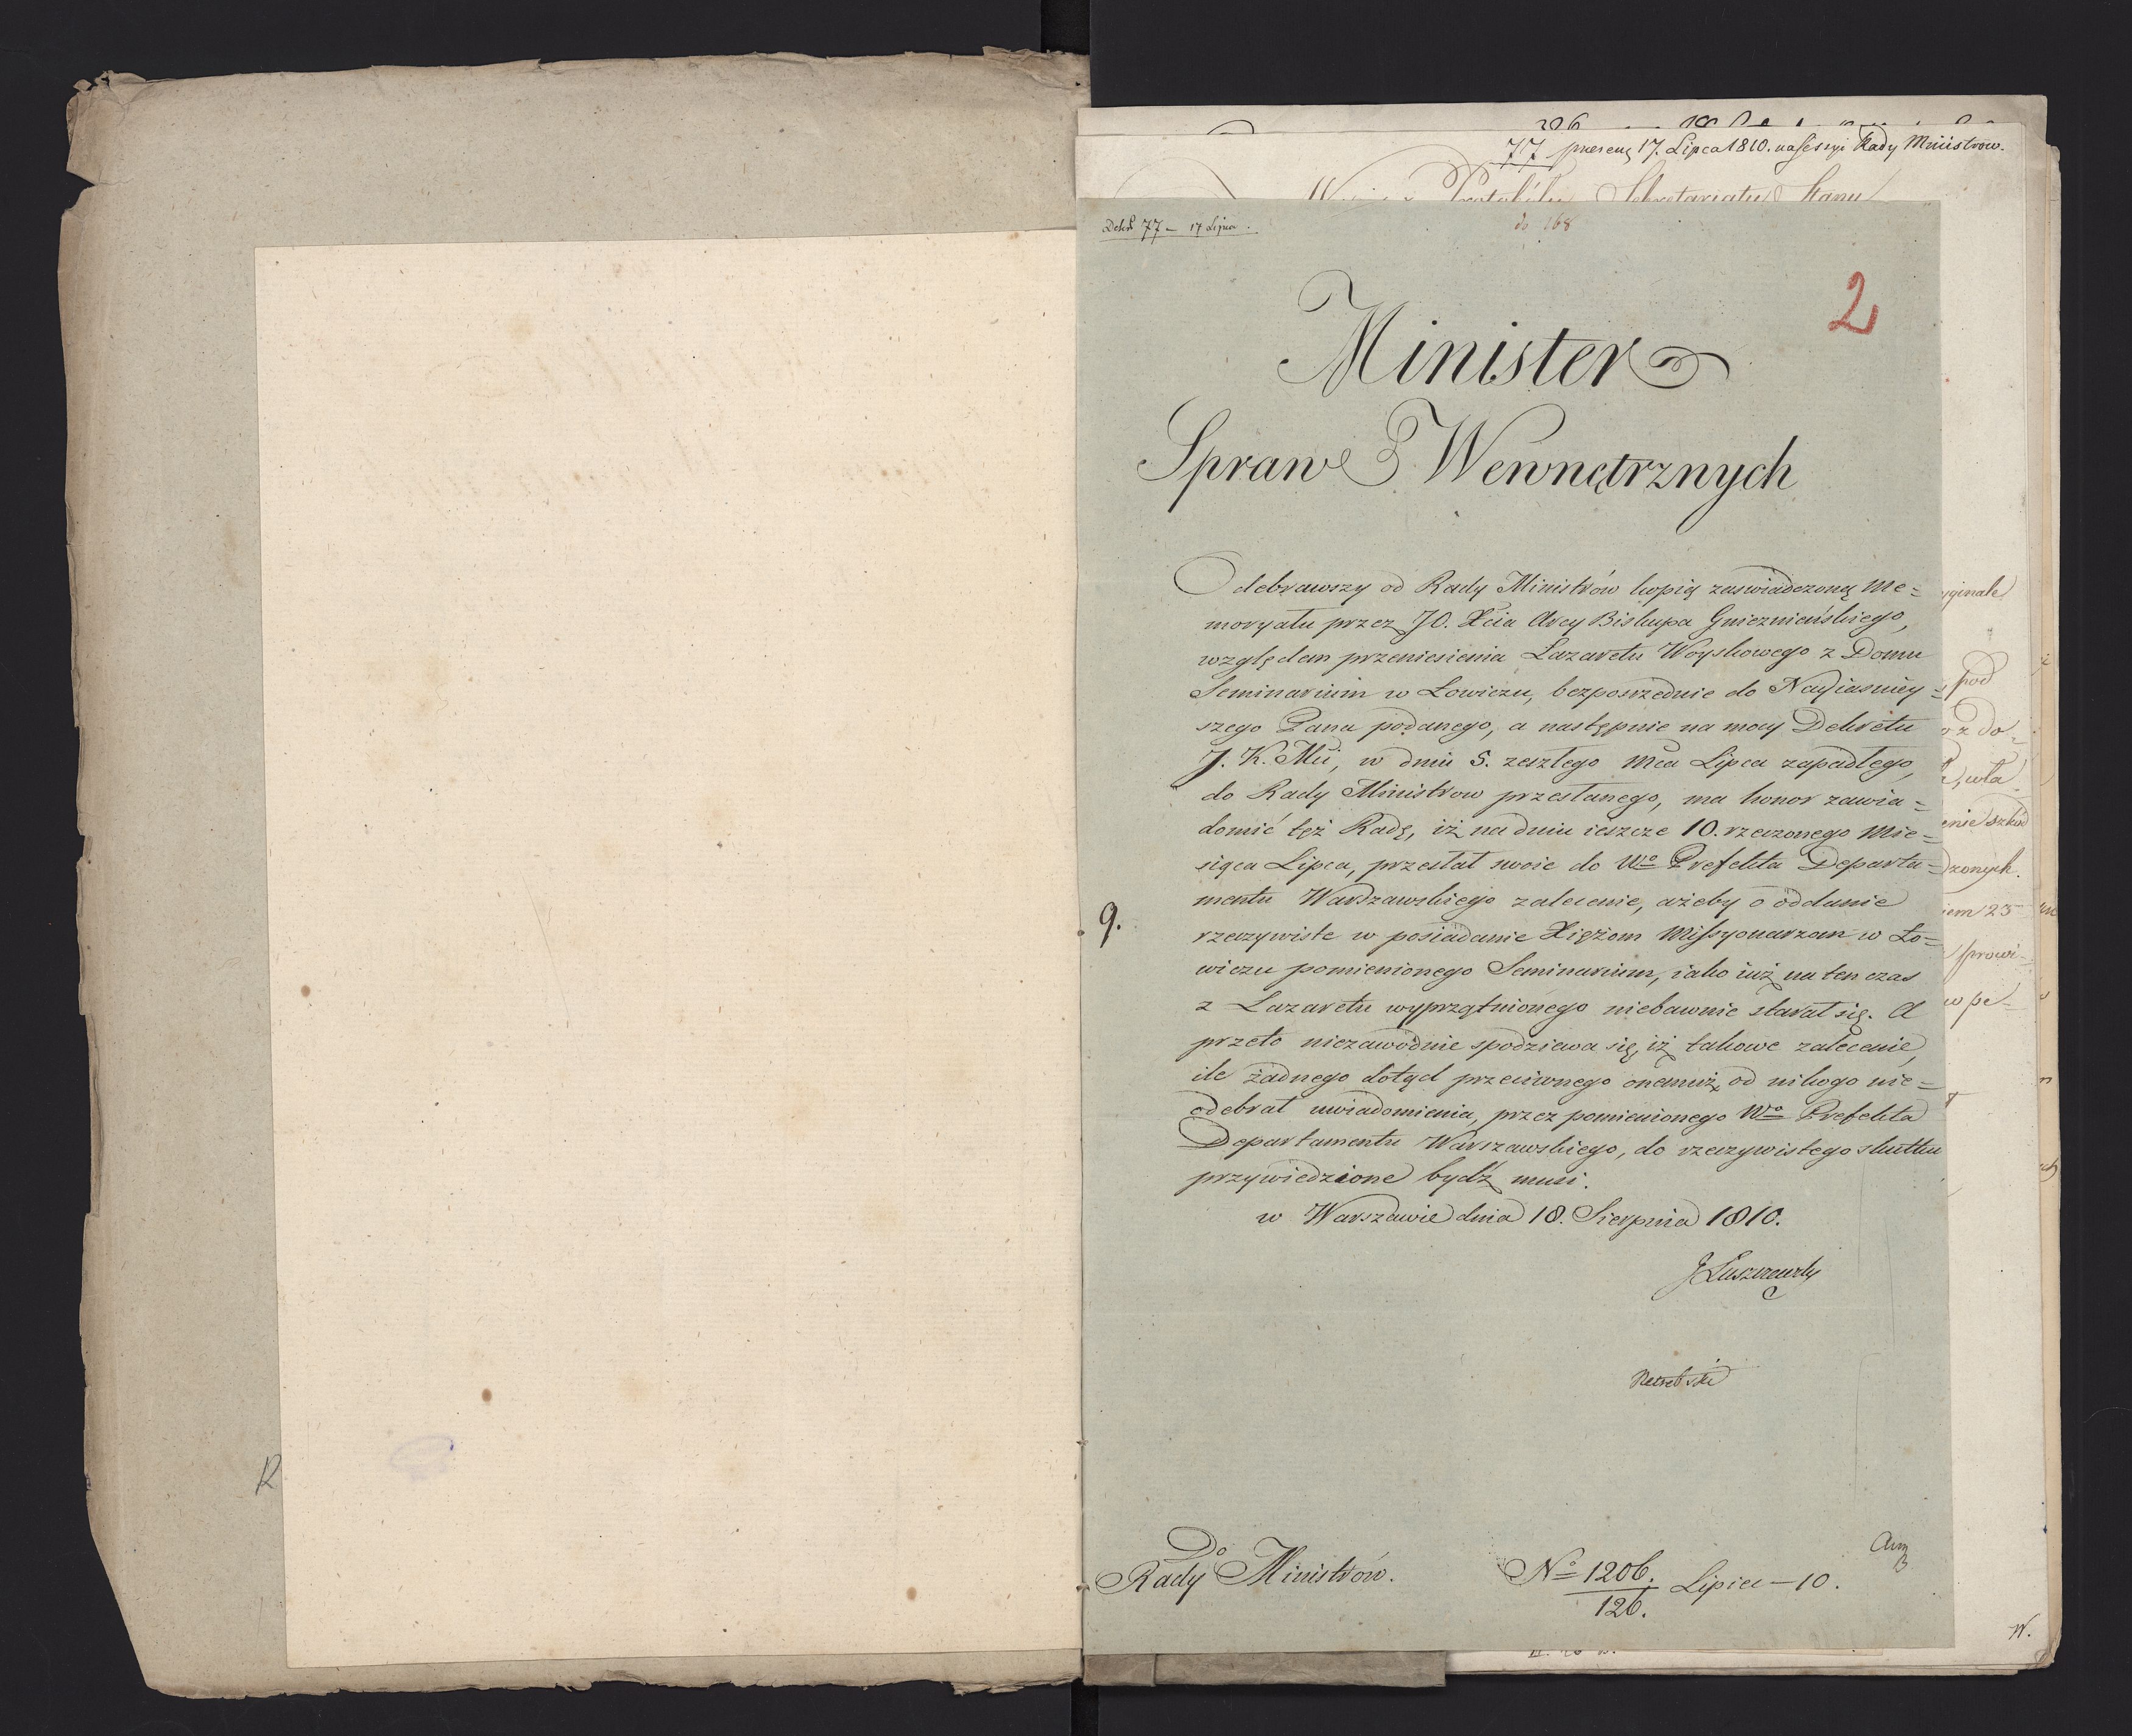 77 17. Lipca 1810. na Sessyi Rady Ministrow.
Protokólu Sekretariatu Stanu
77 – 17 Lipca.
do 168
2
Minister
Spraw Wewnętrznych
Odebrawszy od Rady Ministrów kopią zaswiadczoną Me=
moryału przez JO. Xcia Arcy Biskupa Gnieznieńskiego,
względem przeniesienia Lazaretu Woyskowego z Domu
Seminarium w Łowiczu, bezposrzednie do Nayiasniey=
szego Pana podanego, a następnie na mocy Dekretu
J. K. Mci, w dniu 5. zeszłego Mca Lipca zapadłego,
do Rady Ministrow przesłanego, ma honor zawia=
domić też Radę, iż na dniu ieszcze 10. rzeczonego Mie=
siąca Lipca, przesłał swoie do Wgo Prefekta Departa=
mentu Warszawskiego zalecenie, ażeby o oddanie
rzeczywiste w posiadanie Xiężom Missyonarzom w Ło=
wiczu pomienionego Seminarium, iako iuż na ten czas
z Lazaretu wyprzątnionego niebawnie starał się. A
przeto niezawodnie spodziewa się, iż takowe zalecenie,
ile żadnego dotąd przeciwnego onemuż od nikogo nie=
odebrał uwiadomienia, przez pomienionego Wgo Prefekta
Departamentu Warszawskiego, do rzeczywistego skutku
przywiedzione bydź musi.
w Warszawie dnia 18. Sierpnia 1810.
J Łuszczewski
9.
Do
Rady Ministrów.
No 1206.
126.
Lipiec – 10.
yginale
pod
z do=
wła
enie szkód
dzonych.
iem 25
prowi=
w pe=
W.
R